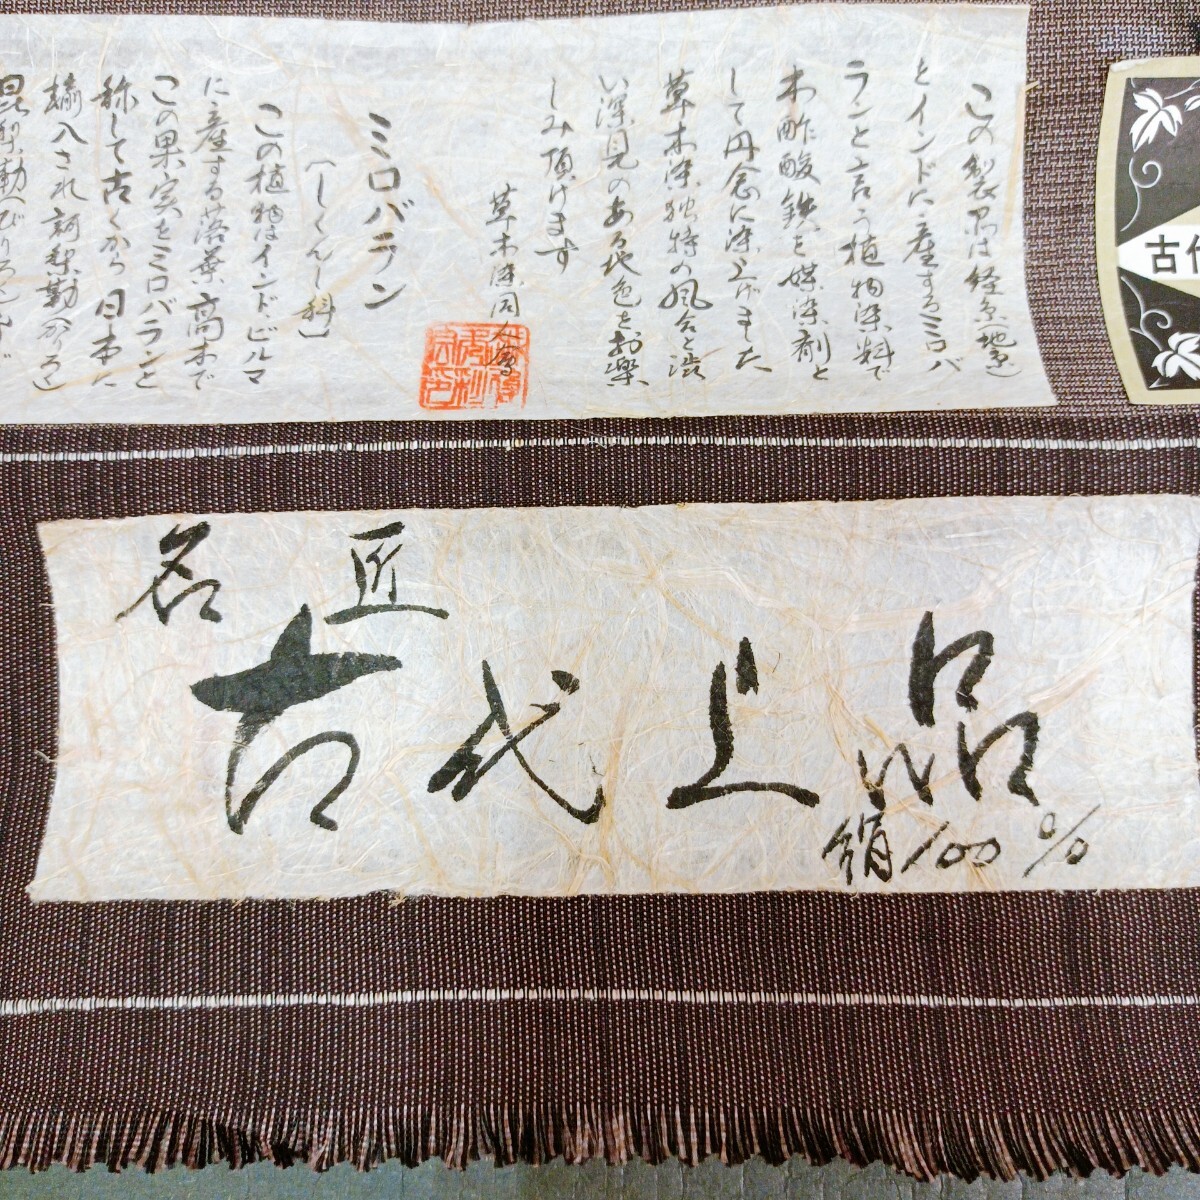 この製品は経糸(地糸)
とインドに産するミロバ
ランと言う植物染料で
木酢酸鉄を媒染剤と
して丹念に染上げました
草木染独特の風合と渋
い深見のある地色をお楽
しみ頂けます
草木染同人
ミロバラン
(しくんし科)
この植物はインドビルマ
に産する落葉高木で
この果実をミロバランと
称して古くから日本に
輸入され訶梨勒(かろ)
古代
名匠
古代上品
絹100%